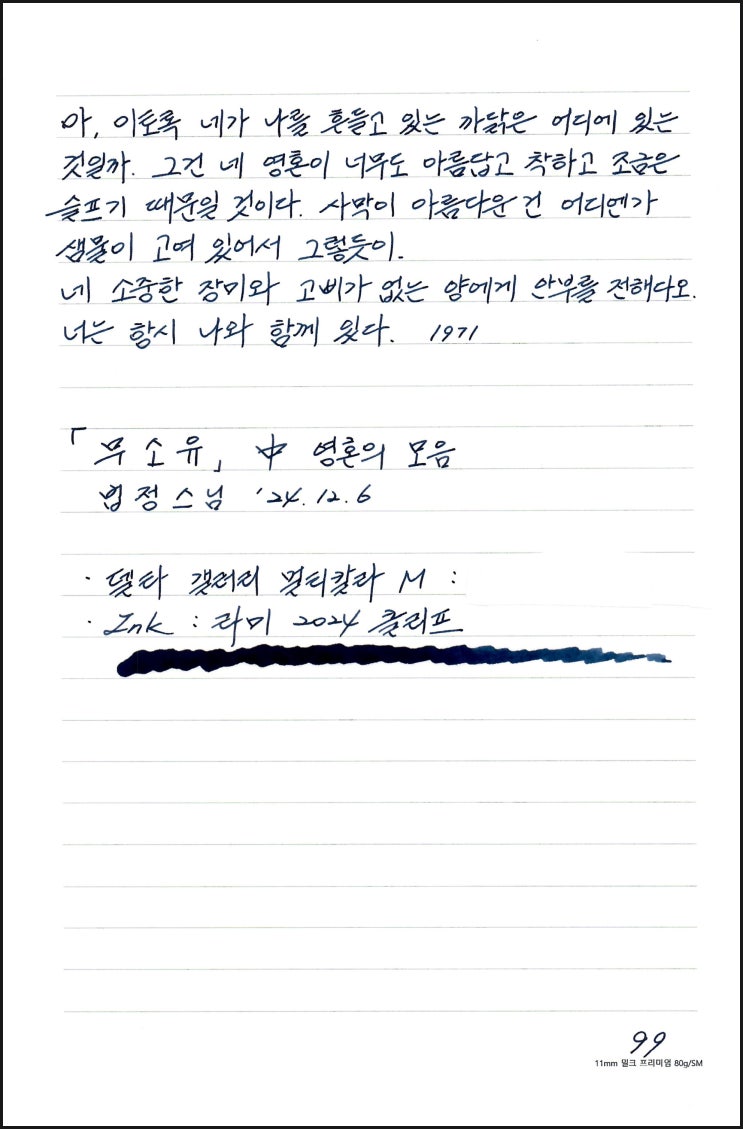 아, 이토록 네가 나를 흔들고 있는 까닭은 어디에 있는
것일까. 그건 네 영혼이 너무도 아름답고 착하고 조금은
슬프기 때문일 것이다. 사막이 아름다운 건 어디엔가
샘물이 고여 있어서 그렇듯이.
네 소중한 장미와 고삐가 없는 양에게 안부를 전해다오.
너는 항시 나와 함께 있다. 1971
「무소유」 中 영혼의 모음
법정스님 '24.12.6
· 델타 갤러리 멀티칼라 M :
· Ink : 라미 2024 클리프
99
11mm 밀크 프리미엄 80g/SM